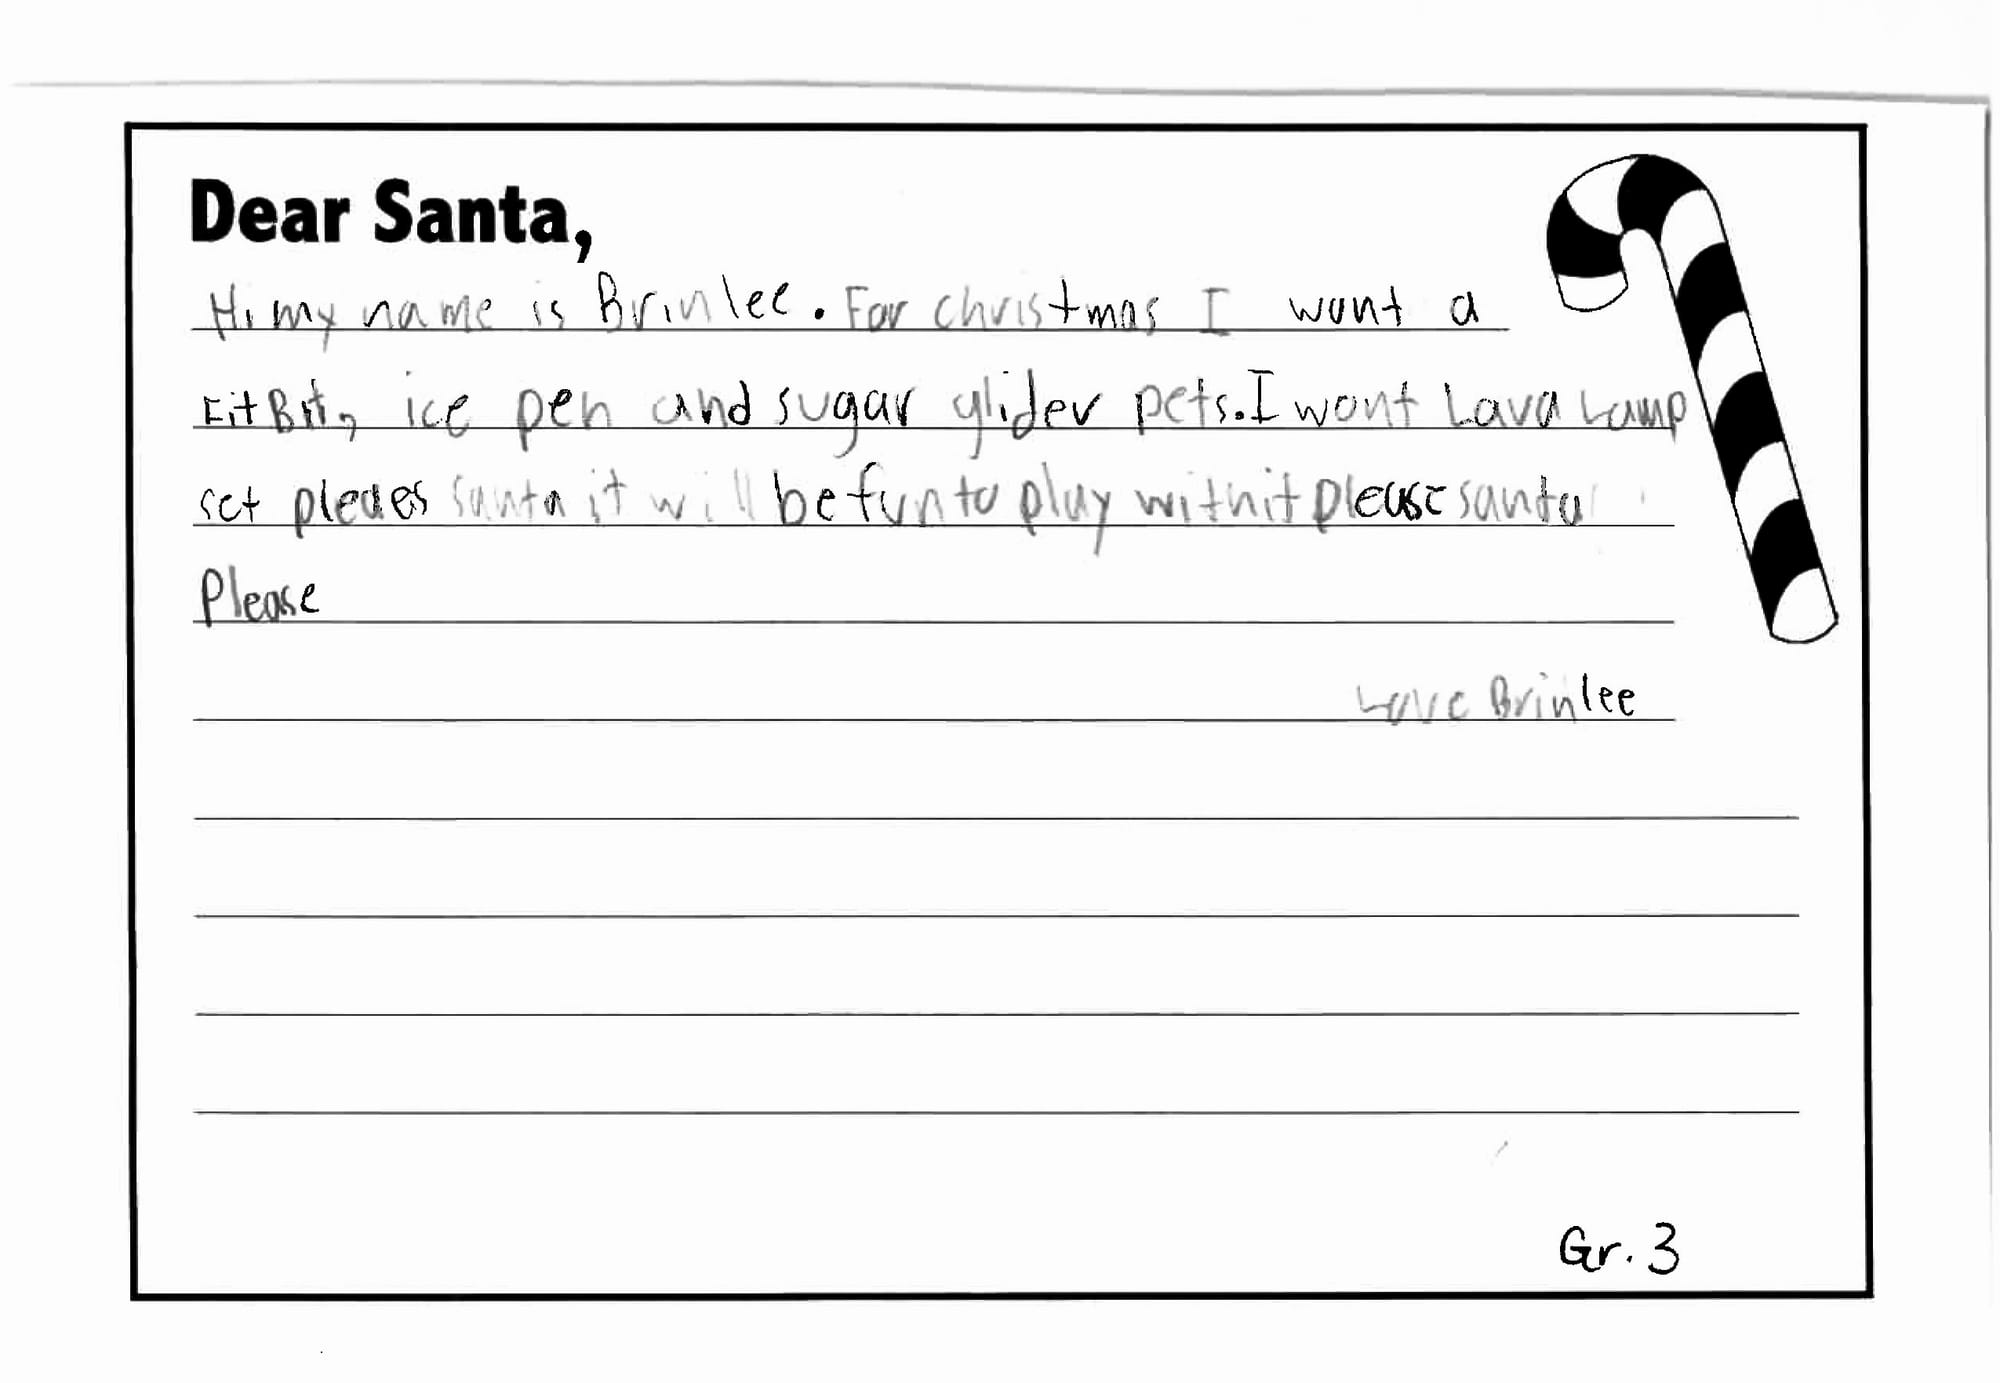 Dear Santa,
Hi my name is Brinlee. For christmas I want a
FitBit, ice pen and sugar glider pets. I want Lava Lamp
set pleaes santa it will be fun to play with it please santa
Please
Love Brinlee
Gr. 3